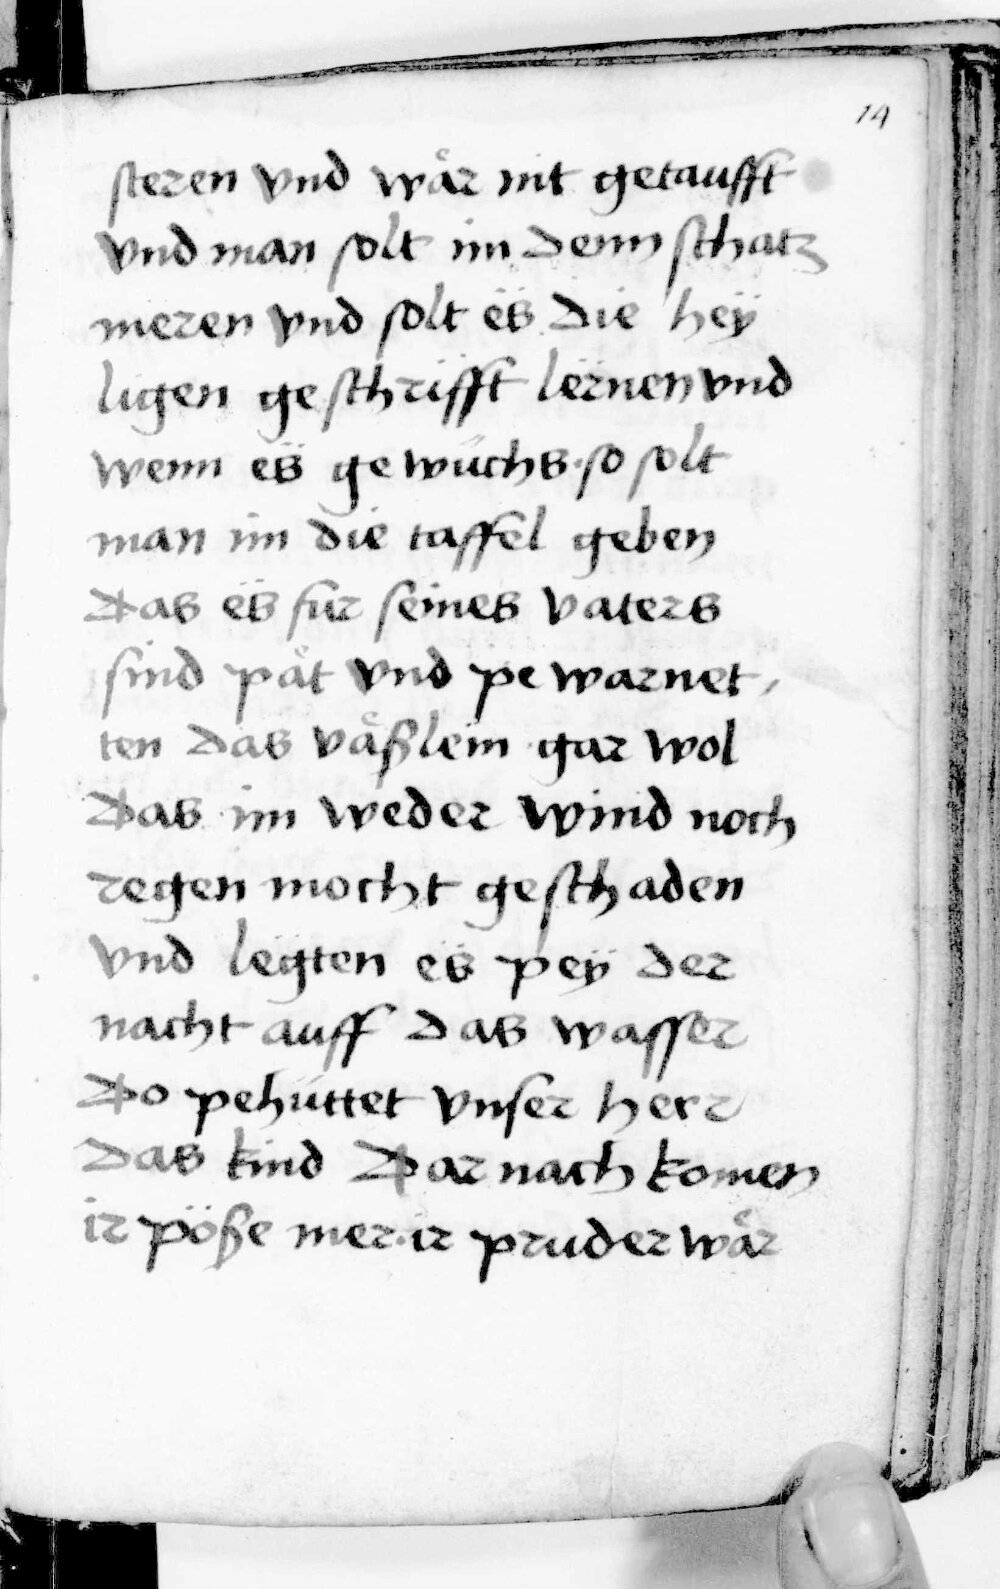 14
steren vnd wår nit getaufft
vnd man solt im denn schatz
meren vnd solt ës die heÿ
ligen geschrifft lërnen vnd
wenn ës gewüchs · so solt
man im die taffel geben
Das ës fur seines vaters
sind påt vnd pewarnet,
ten das våßlein gar wol
Das im weder wind noch
regen mocht geschaden
vnd legten ës peÿ der
nacht auff das wasser
Do pehüttet vnser herr
das kind Darnach komen
ir pöße mer · ir pruder wår